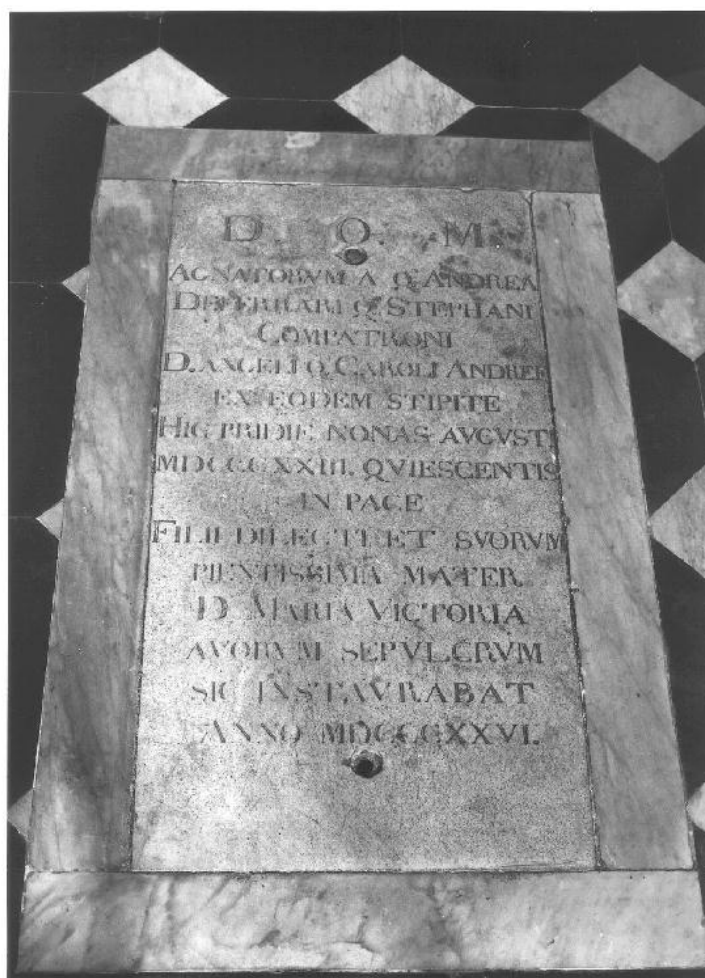 D. O. M
AGNATORVM A Q. ANDREA
DEFERRARI Q. STEPHANI
COMPATRONI
D. ANGELI Q. CAROLI ANDREE
EX EODEM STIPITE
HIC PRIDIE NONAS AVGVSTI
MDCCCXXIII. QVIESCENTIS
IN PACE
FILII DILECTI ET SVORVM
PIENTISSIMA MATER
D. MARIA VICTORIA
AVORVM SEPVLCRVM
SIC INSTAVRABAT
ANNO MDCCCXXVI.